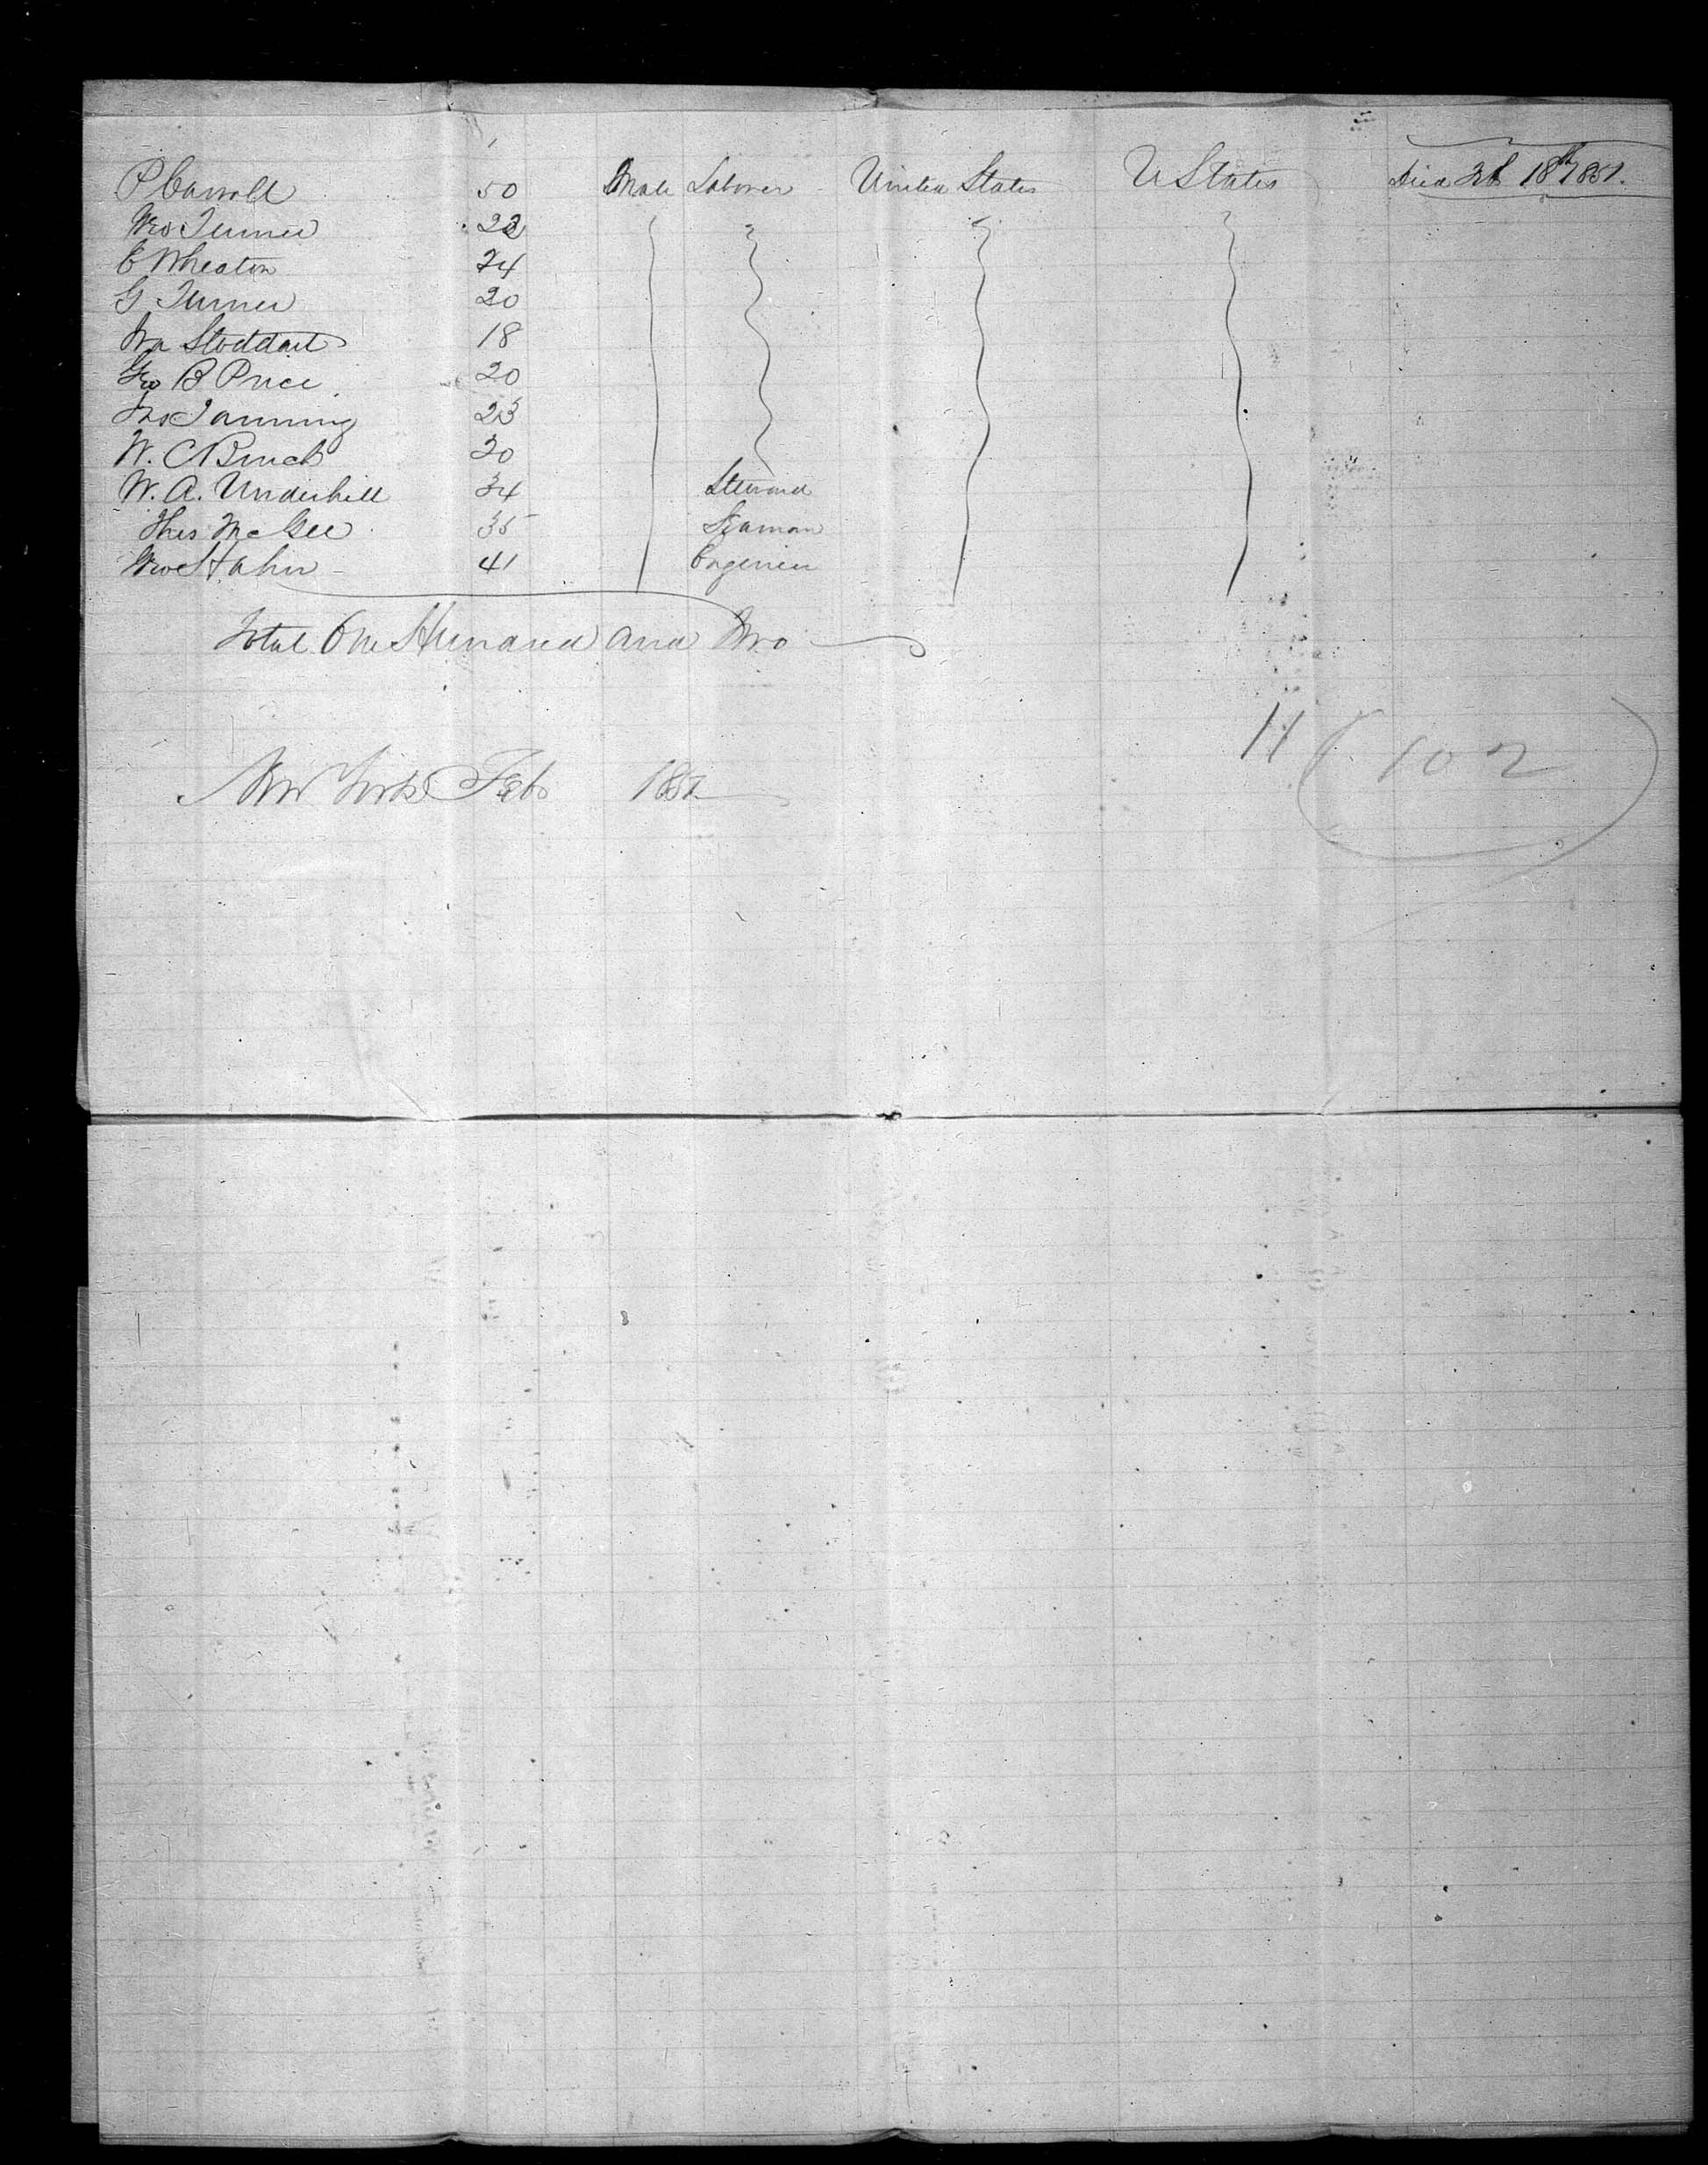 P Carroll 50 Male Laborer United States U States Died Feb 18th 1851.
Turner 22
E Wheaton 24
G Turner 20
Stoddart 18
Geo B Price 20
Tanning 23
W. C 20
W. A. Underhill 34 Steward
Thos McGee 35 Seaman
Hahn 41 Engenier
Total One Hundred and Two
11 102
New York Feb 1851